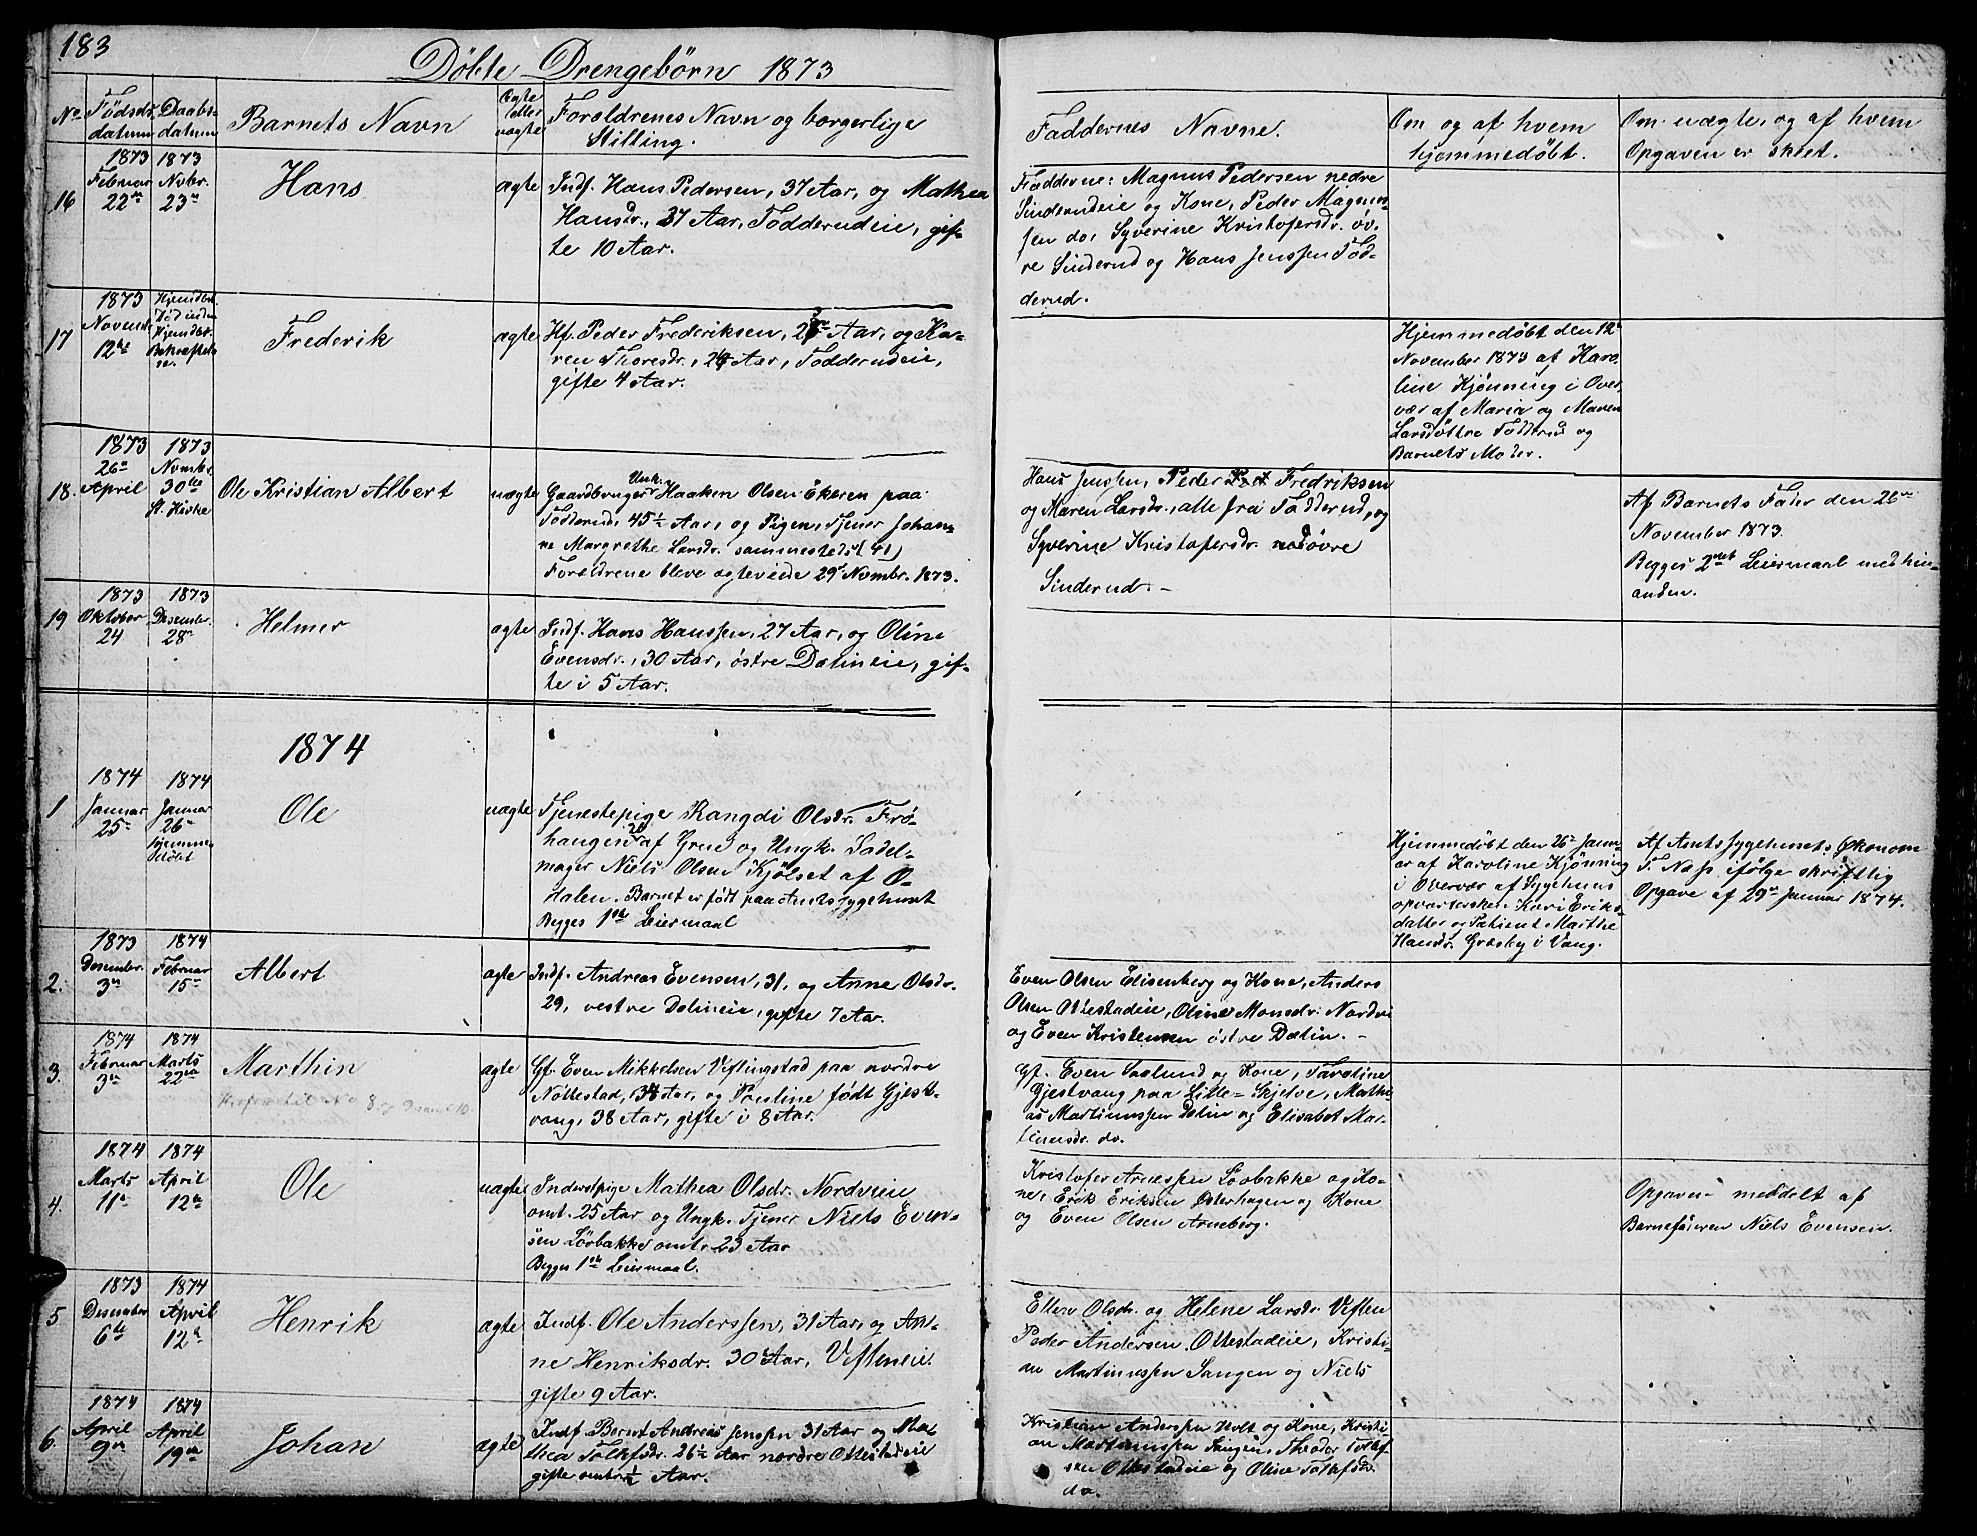 183
Döbte Drengebörn 1873
No
Födsels
datum
Daabs-
datum
Barnets Navn
Ægte
eller
uægte
Forældrenes Navn og borgerlige
Stilling.
Faddernes Navne.
Om og af hvem
hjemmedöbt.
Om uægte, og af hvem
Opgaven er skeet.
16
1873
Februar
22de
1873
Novbr.
23de
Hans
ægte
Indf. Hans Pedersen, 37 Aar, og Mathea
Hansdr., 37 Aar, Födderudeie, gif-
te 10 Aar.
Fadderne: Magnus Pedersen nedre
Sinderudeie og Kone, Peder Magnus-
sen do, Syverine Kristofersdr. öv-
re Sinderud og Hans Jenssen Föd-
derud.
17
1873
Novemb.
12te
Frederik
ægte
Hf. Peder Frederiksen, Aar, og Ka-
ren Thoresdr., 24 Aar, Födderudeie,
gifte 4 Aar.
Hjemmedöbt den 12te
November 1873 af Karo-
line Kjönning i Over-
vær af Maria og Maren
Larsdöttre Födderud og
Barnets Moder.
18.
1873
26de
April
1873
Novembr.
30te
St. Kirke
Ole Kristian Albert
uægte
Gaardbruger Unk. Haaken Olsen Ekeren paa
Födderud, 45½ Aar, og Pigen, Tjener Johan-
ne Margrethe Larsdr. sammesteds (41)
Forældrene bleve ægteviede 29de Novembr. 1873.
Hans Jenssen, Peder Fredriksen
og Maren Larsdr., alle fra Födderud, og
Syverine Kristofersdr. övre
Sinderud. -
Af Barnets Fader den 26de
November 1873.
Begges 2net Leiermaal med hin-
anden.
19
1873
Oktober
24
1873
Desember.
28de
Helmer
ægte
Indf. Hans Hanssen, 27 Aar, og Oline
Evensdr., 30 Aar, östre Dælineie, gif-
te i 5 Aar.
1874
1
1874
Januar
25de
1874
Januar
26de
hjemme-
döbt
Ole
uægte
Tjenestepige Rangdi Olsdr. Frö-
haugen 20 af Grue og Ungk. Sadel-
mager Niels Olsen Kjölset af O-
dalen. Barnet er födt paa Amtssygehuset
Begges 1ste Leiermaal
Hjemmedöbt den 26de Janu-
ar af Karoline Kjönning
i Overvær af Sygehus
opvartersken Kari Eriks-
datter og Patient Marthe
Hansdr. Gröslby i Vang.
Af Amtssygehusets Økonom
T. Næss ifölge skriftlig
Opgave af 29de Januar 1874.
2.
1873
Desember.
3de
1874
Februar
15de
Albert
ægte
Indf. Andreas Evensen, 31, og Anne Olsdr.
29, vestre Dælineie, gifte 7 Aar.
Even Olsen Elisenberg og Kone, Anders
Olsen Ottestadeie, Oline Monsdr. Nordvi
og Even Kristensen östre Dælin. -
3.
1874
Februar
3de
1874
Marts
22de
Marthin
ægte
Gf. Even Mikkelsen Viflingstad paa nordre
Nöttestad, 34 Aar, og Pauline födt Gjest-
vang, 38 Aar, gifte i 8 Aar.
Gf. Even Saxlund og Kone, Karoline
Gjestvang paa Lille-Skjelve, Mathi-
as Martinussen Dælin og Elisabet Mar-
tinusdr. do.
4.
1874
Marts
11te
1874
April
12te
Ole
uægte
Inderstpige Mathea Olsdr. Nordvieie
omt. 25 Aar og Ungk. Tjener Niels Even-
sen Lörbakke omt. 23 Aar
Begges 1ste Leiermaal.
Kristofer Arnessen Lörbakke og Ko-
ne, Erik Eriksen Osterhagen og Kone
og Even Olsen Arneberg.
Opgaven meddelt af
Barnefaderen Niels Evensen.
5
1873
Desember
6te
1874
April
12te
Henrik
ægte
Indf. Ole Anderssen, 31 Aar, og An-
ne Henriksdr. 30 Aar, Vifteneie.
gifte 9 Aar.
Ellen Olsdr. og Helene Larsdr. Viften
Peder Andersen Ottestadeie, Kristi-
an Martinussen Sangen og Niels
6.
1874
April
9de
1874
April
19de
Johan
ægte
Indf. Bernt Andreas Jenssen 31 Aar og Ma-
thea Tollefsdr. 26½ Aar nordre Ottestadeie
gifte omtr. ½ Aar.
Kristian Anderssen Holt og Kone, Kristi-
an Martinussen Sangen, Theodor Tollef-
sen Ottestadeie og Oline Tollefsdr.
do.